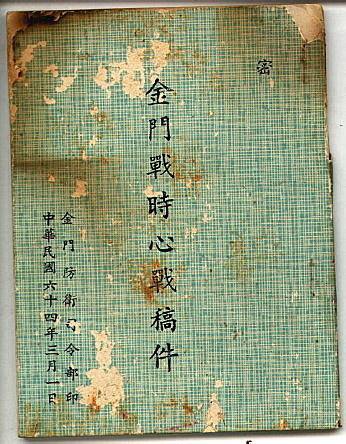 密
金門戰時心戰稿件
金門防衛司令部印
中華民國六十四年三月一日